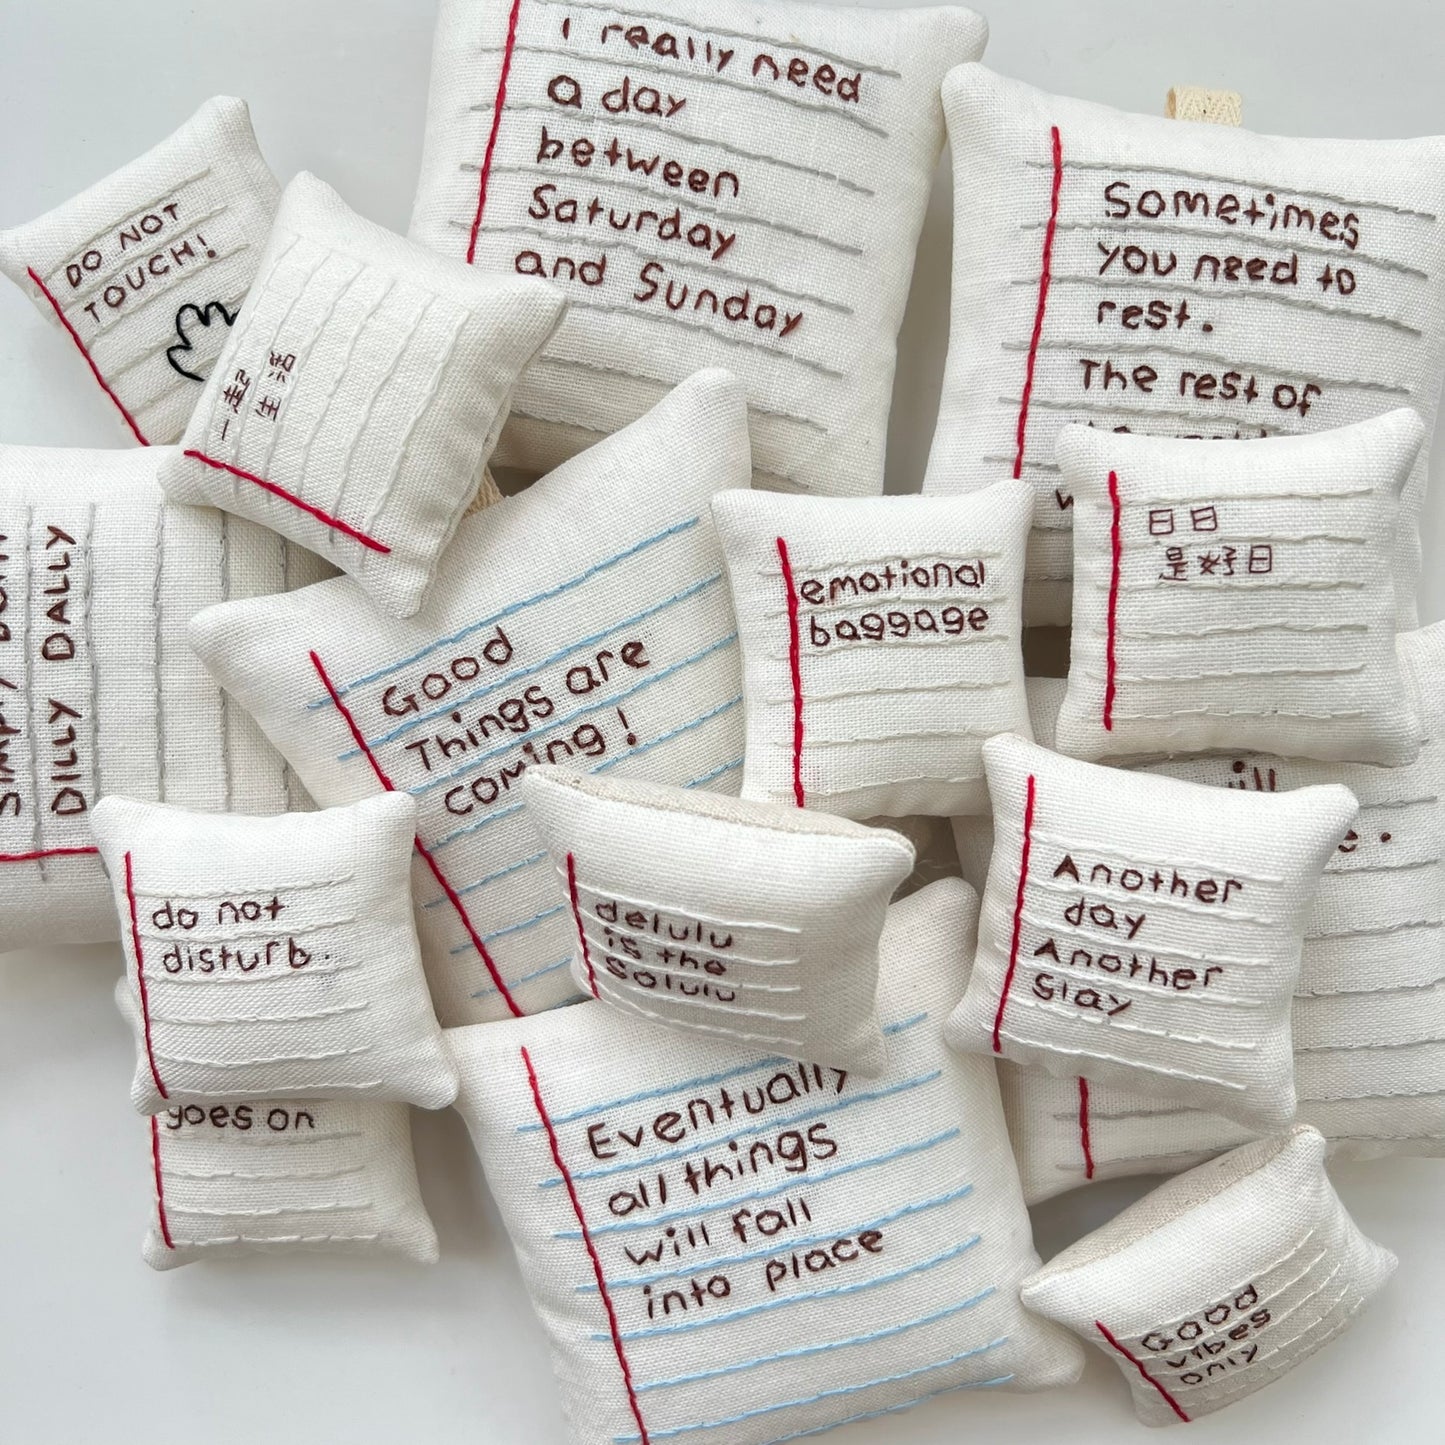 I really need
a day
between
Saturday
and Sunday
Sometimes
you need to
rest.
The rest of
DO NOT
TOUCH!
一起
生活
DILLY DALLY
Good
Things are
coming!
emotional
baggage
日日
是好日
do not
disturb.
goes on
delulu
is the
solulu
Another
day
Another
slay
Eventually
all things
will fall
into place
Good
vibes
only